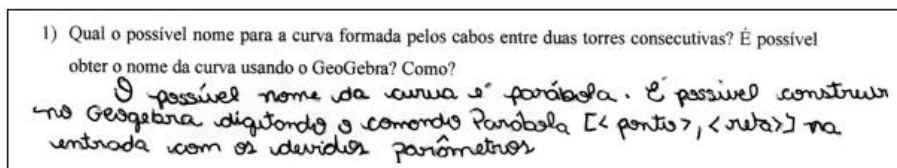 1) Qual o possível nome para a curva formada pelos cabos entre duas torres consecutivas? É possível
obter o nome da curva usando o GeoGebra? Como?
O possível nome da curva é parábola. É possível construir
no Geogebra digitando o comando Parábola [< ponto>, <reta>] na
entrada com os devidos parâmetros